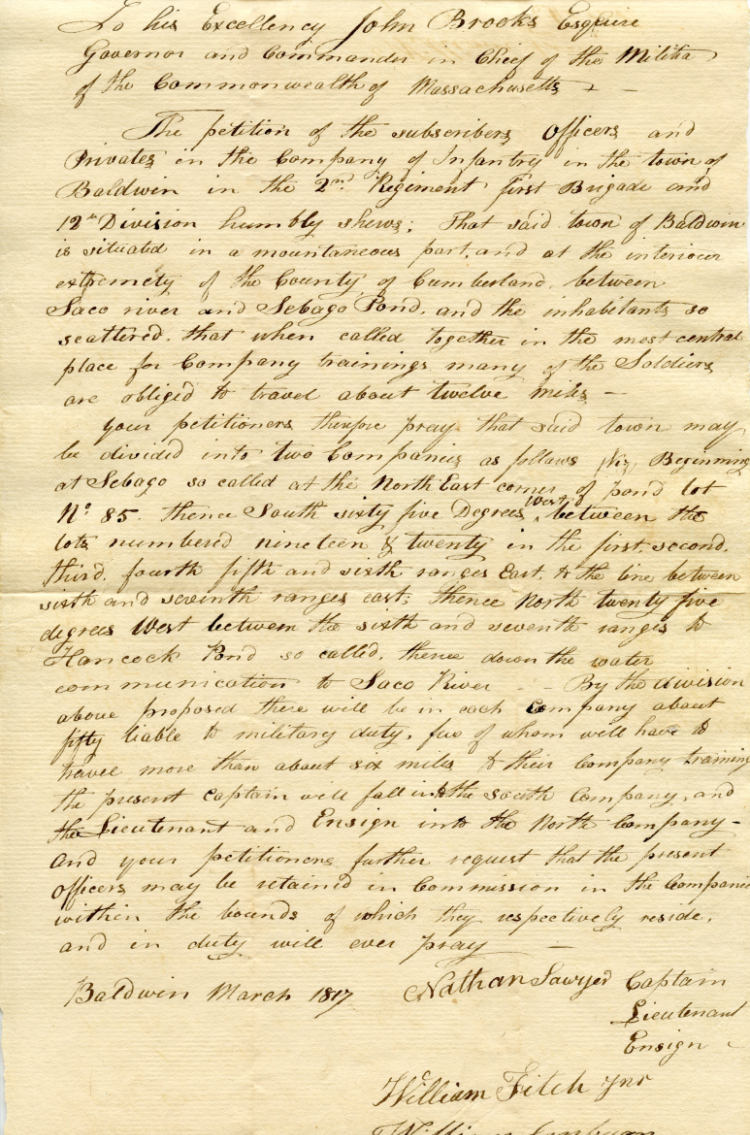 To his Excellency John Brooks Esquire
Governor and Commander in Chief of the Militia
of the Commonwealth of Massachusetts
The petition of the subscribers, Officers and
Privates in the Company of Infantry in the town of
Baldwin in the 2nd Regiment first Brigade and
12th Division humbly shews; That said town of Baldwin
is situated in a mountaneous part, and at the interiour
extremety of the County of Cumberland, between
Saco river and Sebago Pond, and the inhabitants so
scattered, that when called together in the most central
place for Company trainings many of the Soldiers
are obliged to travel about twelve miles —
your petitioners therfore pray that said town may
be divided into two Companies as follows viz, Beginning
at Sebago so called at the North East corner of pond lot
No 85. thence South sixty five Degrees West, between the
lots numbered nineteen & twenty in the first, second,
third, fourth fifth and sixth ranges East, to the line between
sixth and seventh ranges east; thence North twenty five
degrees West between the sixth and seventh ranges to
Hancock Pond so called, thence down the water
communication to Saco River — By the division
above proposed there will be in each Company about
fifty liable to military duty, few of whom will have to
travel more than about six miles to their Company training
the present Captain will fall into the south Company, and
the Lieutenant and Ensign into the North Company -
And your petitioners further request that the present
officers may be retained in Commission in the Companies
within the bounds of which they respectively reside,
and in duty will ever pray —
Baldwin March 1817 Nathan Sawyer Captain
Lieutenant
Ensign
William Fitch Jnr